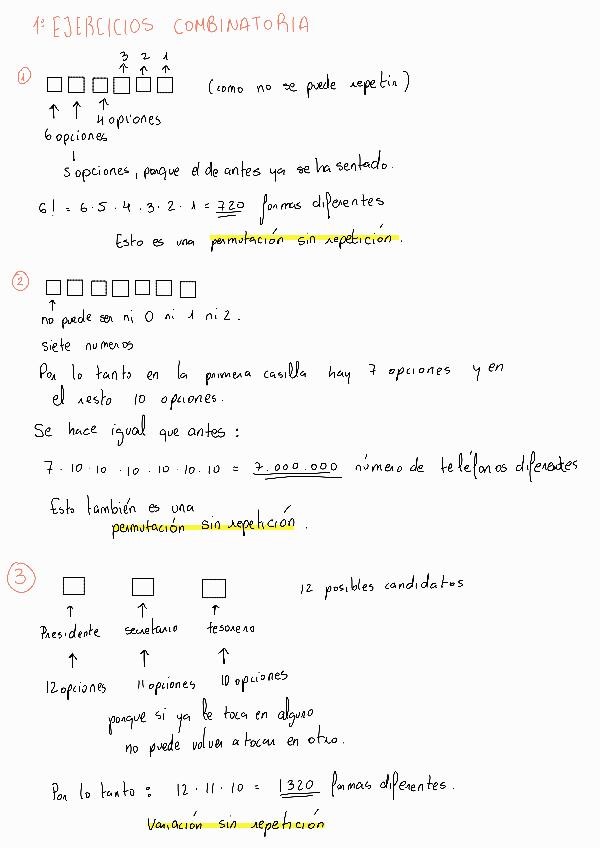 1º EJERCICIOS COMBINATORIA
3 2 1
1 (como no se puede repetir)
4 opciones
6 opciones
5 opciones, porque el de antes ya se ha sentado.
6! = 6 · 5 · 4 · 3 · 2 · 1 = 720 formas diferentes
Esto es una permutación sin repetición.
2
no puede ser ni 0 ni 1 ni 2.
siete numeros
Por lo tanto en la primera casilla hay 7 opciones y en
el resto 10 opciones.
Se hace igual que antes:
7 · 10 · 10 · 10 · 10 · 10 · 10 = 7.000.000 número de teléfonos diferentes
Esto también es una
permutación sin repetición.
3 12 posibles candidatos
Presidente secretario tesorero
12 opciones 11 opciones 10 opciones
porque si ya le toca en alguno
no puede volver a tocar en otro.
Por lo tanto: 12 · 11 · 10 = 1320 formas diferentes.
Variación sin repetición